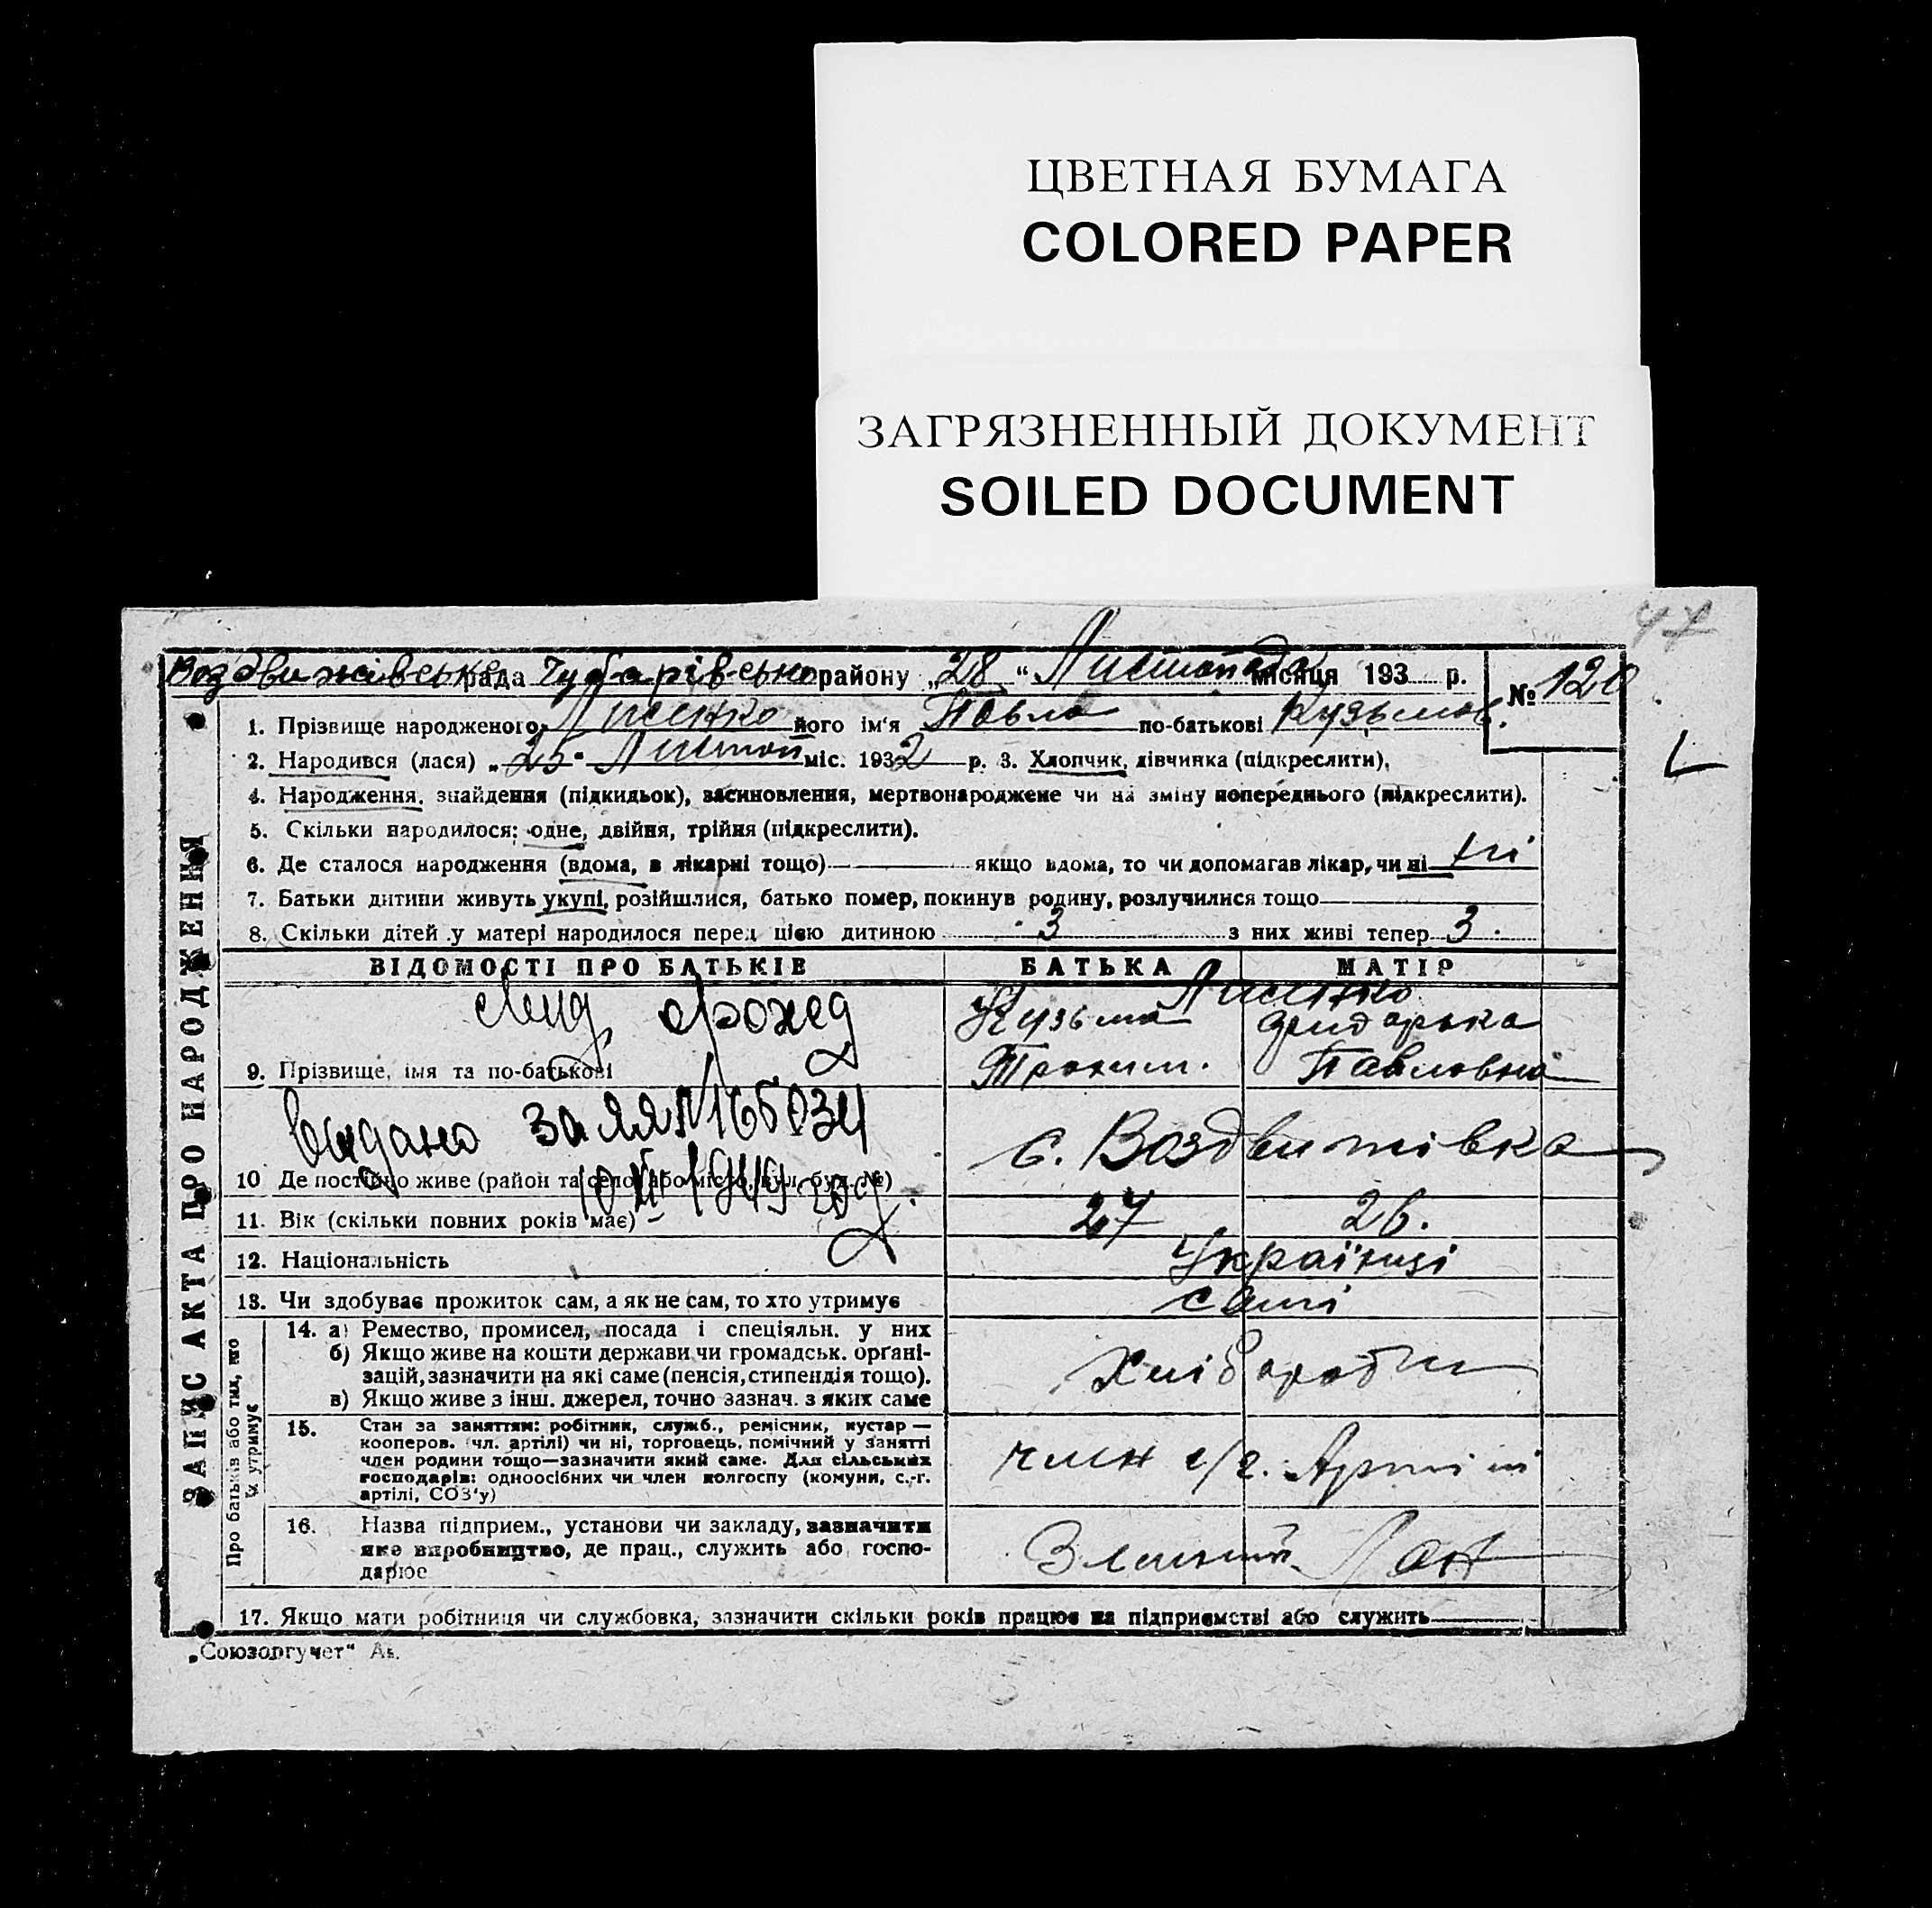 ЦВЕТНАЯ БУМАГА
COLORED PAPER
ЗАГРЯЗНЕННЫЙ ДОКУМЕНТ
SOILED DOCUMENT
47
Воздвижівська рада Чубарівсько району „28“ Листопада місяця 193 р. № 120
1. Прізвище народженого Лисенко його ім'я Павло по-батькові Кузьмов.
2. Народився (лася) „25“ Листоп міс. 1932 р. 3. Хлопчик, дівчинка (підкреслити).
4. Народження, знайдення (підкидьок), засиновлення, мертвонароджене чи на зміну попереднього (підкреслити).
5. Скільки народилося: одне, двійня, трійня (підкреслити).
6. Де сталося народження (вдома, в лікарні тощо) якщо вдома, то чи допомагав лікар, чи ні ні
7. Батьки дитини живуть укупі, розійшлися, батько помер, покинув родину, розлучилися тощо
8. Скільки дітей у матері народилося перед цією дитиною 3 з них живі тепер 3.
ВІДОМОСТІ ПРО БАТЬКІВ БАТЬКА МАТІР
Лисенко
Кузьма
Трохим. Павловна
9. Прізвище, імя та по-батькові
видано за ЯЯ № 165034
с. Воздвижівка
10 Де постійно живе (район та село або місто, вул. буд. №)
10 XII 1949
11. Вік (скільки повних років має) 27 26.
12. Національність Українці
13. Чи здобуває прожиток сам, а як не сам, то хто утримує сами
14. а) Ремество, промисел, посада і спеціяльн. у них
б) Якщо живе на кошти держави чи громадськ. орґані-
зацій, зазначити на які саме (пенсія, стипендія тощо).
в) Якщо живе з інш. джерел, точно зазнач. з яких саме
Хлібороби
15. Стан за заняттям: робітник, служб., ремісник, кустар—
кооперов. (чл. артілі) чи ні, торговець, помічний у занятті
член родини тощо—зазначити який саме. Для сільських
господарів: одноосібних чи член колгоспу (комуни, с.-г.
артілі, СОЗ'у)
член с/г. Артілі
16. Назва підприєм., установи чи закладу, зазначити
яке виробництво, де прац., служить або госпо-
дарює
Лан
17. Якщо мати робітниця чи службовка, зазначити скільки років працює на підприємстві або служить
ЗАПИС АКТА ПРО НАРОДЖЕННЯ
Про батьків або тих, хто
їх утримує
„Союзоргучет“